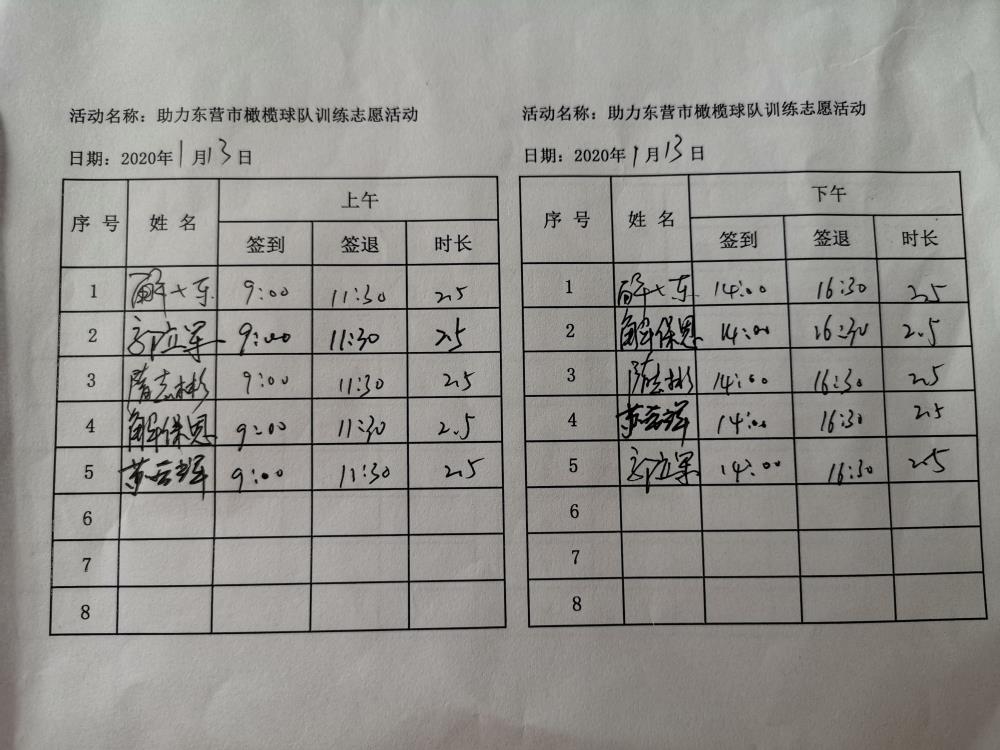 活动名称：助力东营市橄榄球队训练志愿活动
日期：2020年1月13日
序号 姓名 上午
签到 签退 时长
1 9:00 11:30 2.5
2 9:00 11:30 2.5
3 隋志彬 9:00 11:30 2.5
4 解保恩 9:00 11:30 2.5
5 9:00 11:30 2.5
6
7
8
活动名称：助力东营市橄榄球队训练志愿活动
日期：2020年1月13日
序号 姓名 下午
签到 签退 时长
1 14:00 16:30 2.5
2 解保恩 14:00 16:30 2.5
3 隋志彬 14:00 16:30 2.5
4 14:00 16:30 2.5
5 14:00 16:30 2.5
6
7
8